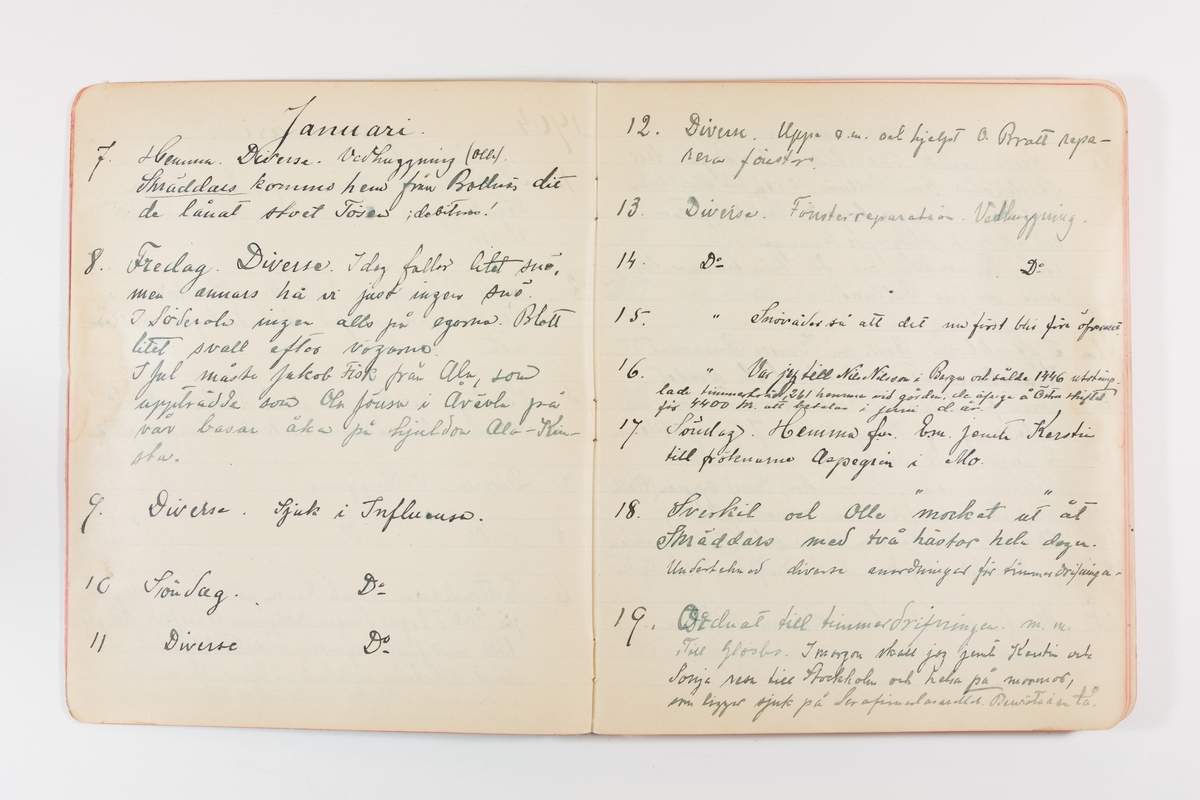 Januari.
7. Hemma. Diverse. Vedhuggning (Olle).
Skräddars kommo hem från Bollnäs dit
de lånat stvet Tösen ; debitum!
8. Fredag. Diverse. Idag faller litet snö,
men annars ha vi just ingen snö.
I Söderala ingen alls på egorna. Blott
litet svall efter vägarne.
I Jul måste Jakob Fisk från Ala, som
uppträdde som Ola Jönsa i Aråvla på
vår basar åka på hjuldon Ala-Kin-
sta.
9. Diverse. Sjuk i Influensa.
10 Söndag. Do
11 Diverse Do
12. Diverse. Uppe e.m. och hjelpt O. Bratt repa-
rera fönster.
13. Diverse. Fönsterreparation. Vedhuggning.
14. Do Do
15. " Snöväder så att det nu först blir före öfverallt
16. " Var jag till Nils Nilsson i Berga och sålde 1446 utstämp-
lade timmerträd, 261 hemma vid gården, de öfriga å Östra skiftet
för 4400 kr. att betalas i juni d. år.
17. Söndag. Hemma fm. Em. jemte Kerstin
till fröknarne Aspegrin i Mo.
18. Sverkil och Olle "mockat ut" åt
Skräddars med två hästar hela dagen.
Undertecknad diverse anordningar för timmerdrifningen.
19. Ordnat till timmerdrifningen m.m.
Till Glösbo. I morgon skall jag jemte Kerstin och
Sonja resa till Stockholm och helsa på mormor,
som ligger sjuk på Serafimerlasarettet. Benröta i en tå.